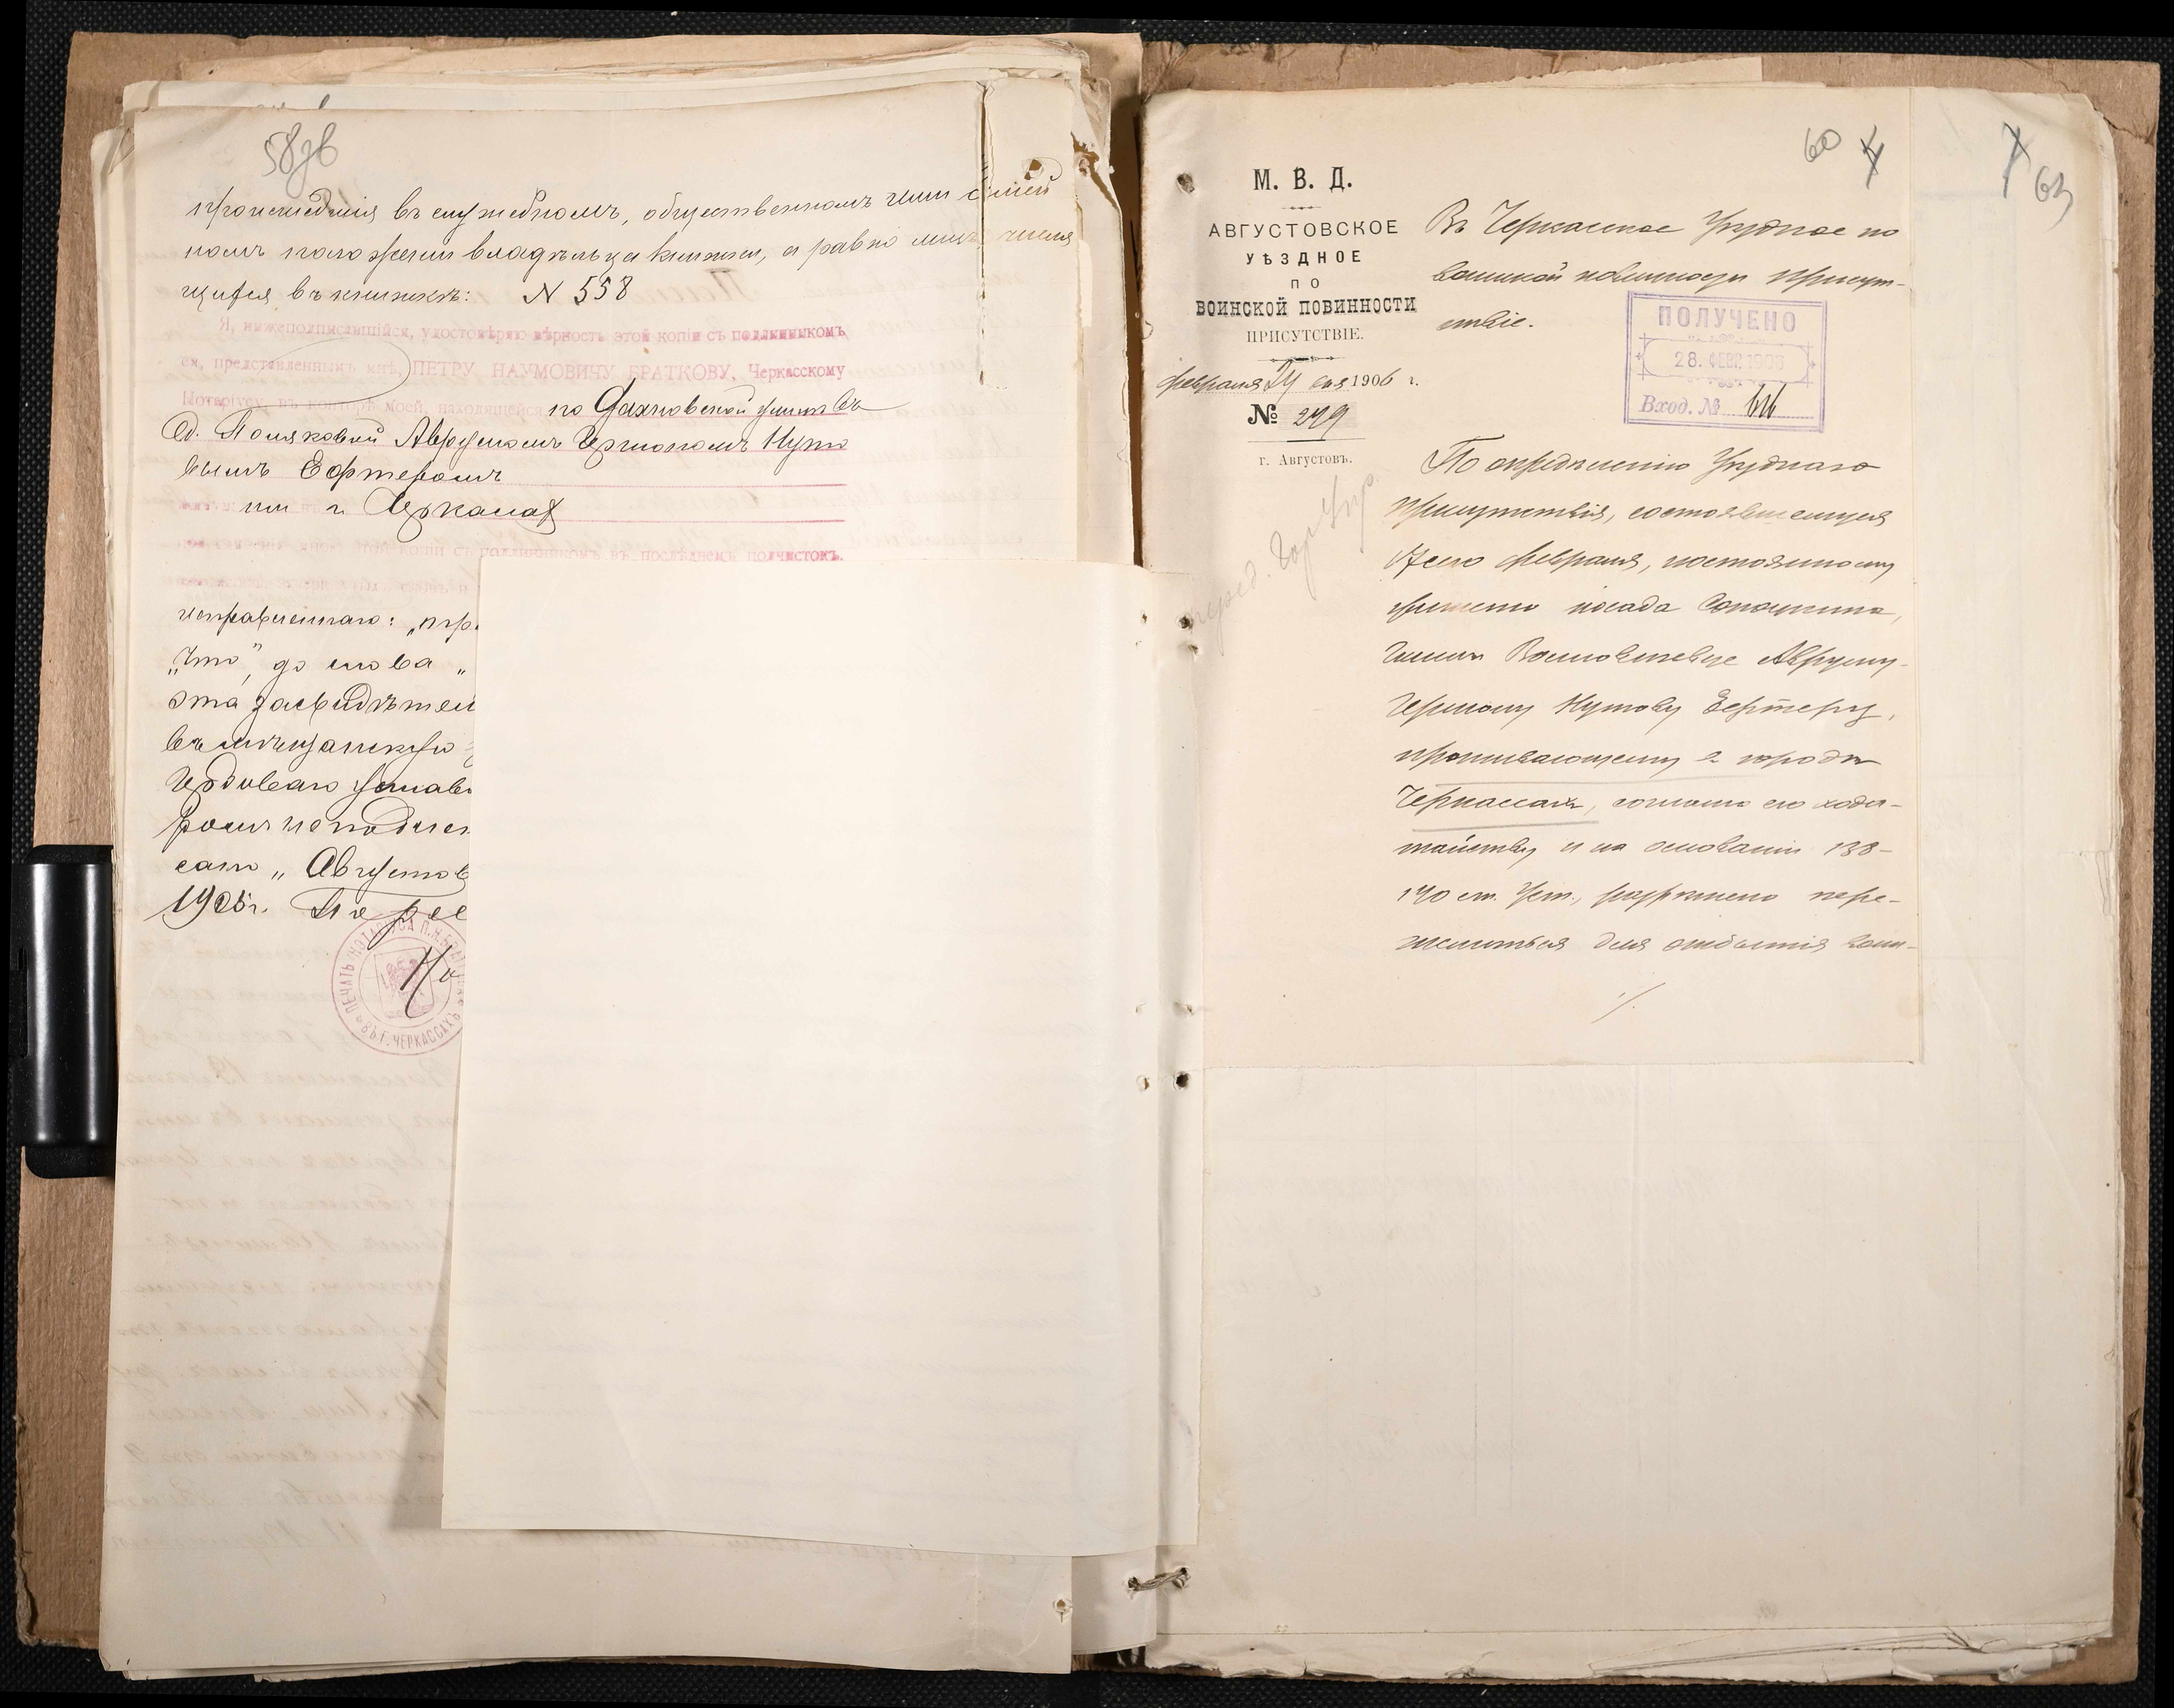 58 об
происшедшія въ служебномъ, общественномъ или семей
номъ положеніи владѣльца книжки, а равно лицъ числя
щихся въ книжкѣ: N 558
Я, нижеподписавшійся, удостовѣряю вѣрность этой копіи съ подлинникомъ
ея, представленнымъ мнѣ, ПЕТРУ НАУМОВИЧУ БРАТКОВУ, Черкасскому
Нотаріусу, въ конторѣ моей, находящейся по улицѣ въ
д. Поляковой Аврумомъ Гершономъ Нутo
вымъ Ефтеромъ
г. Черкассах
копіи съ подлинникомъ въ послѣднемъ подчистокъ,
исправленнаго:
"что", до слова "
эта засвидѣтел
въ мѣщанскую
Гербоваго устава
ромъ не подлеж
сано "Августов
1905 г. По рее
ПЕЧАТЬ НОТАРІУСА П.Н.БРАТКОВА ВЪ Г. ЧЕРКАССАХЪ
Но
60
63
М. В. Д.
АВГУСТОВСКОЕ
УѢЗДНОЕ
ПО
ВОИНСКОЙ ПОВИННОСТИ
ПРИСУТСТВІЕ.
февраля 24 дня 1906 г.
№ 249
г. Августовъ.
Въ Черкасское Уѣздное по
воинской повинности Присут-
ствіе.
ПОЛУЧЕНО
28. ФЕВР. 1906
Вход. №
По опредѣленію Уѣзднаго
Присутствія, состоявшемуся
17 сего февраля, постоянному
жителю посада Сопоцкина,
Гминъ Волловичевце Авруму-
Гершону Нутову Ефтеру,
проживающему в городѣ
Черкассахъ, согласно его хода-
тайству и на основаніи 138-
140 ст. Уст., разрѣшено пере-
жеребиться для отбытія воин-
./.